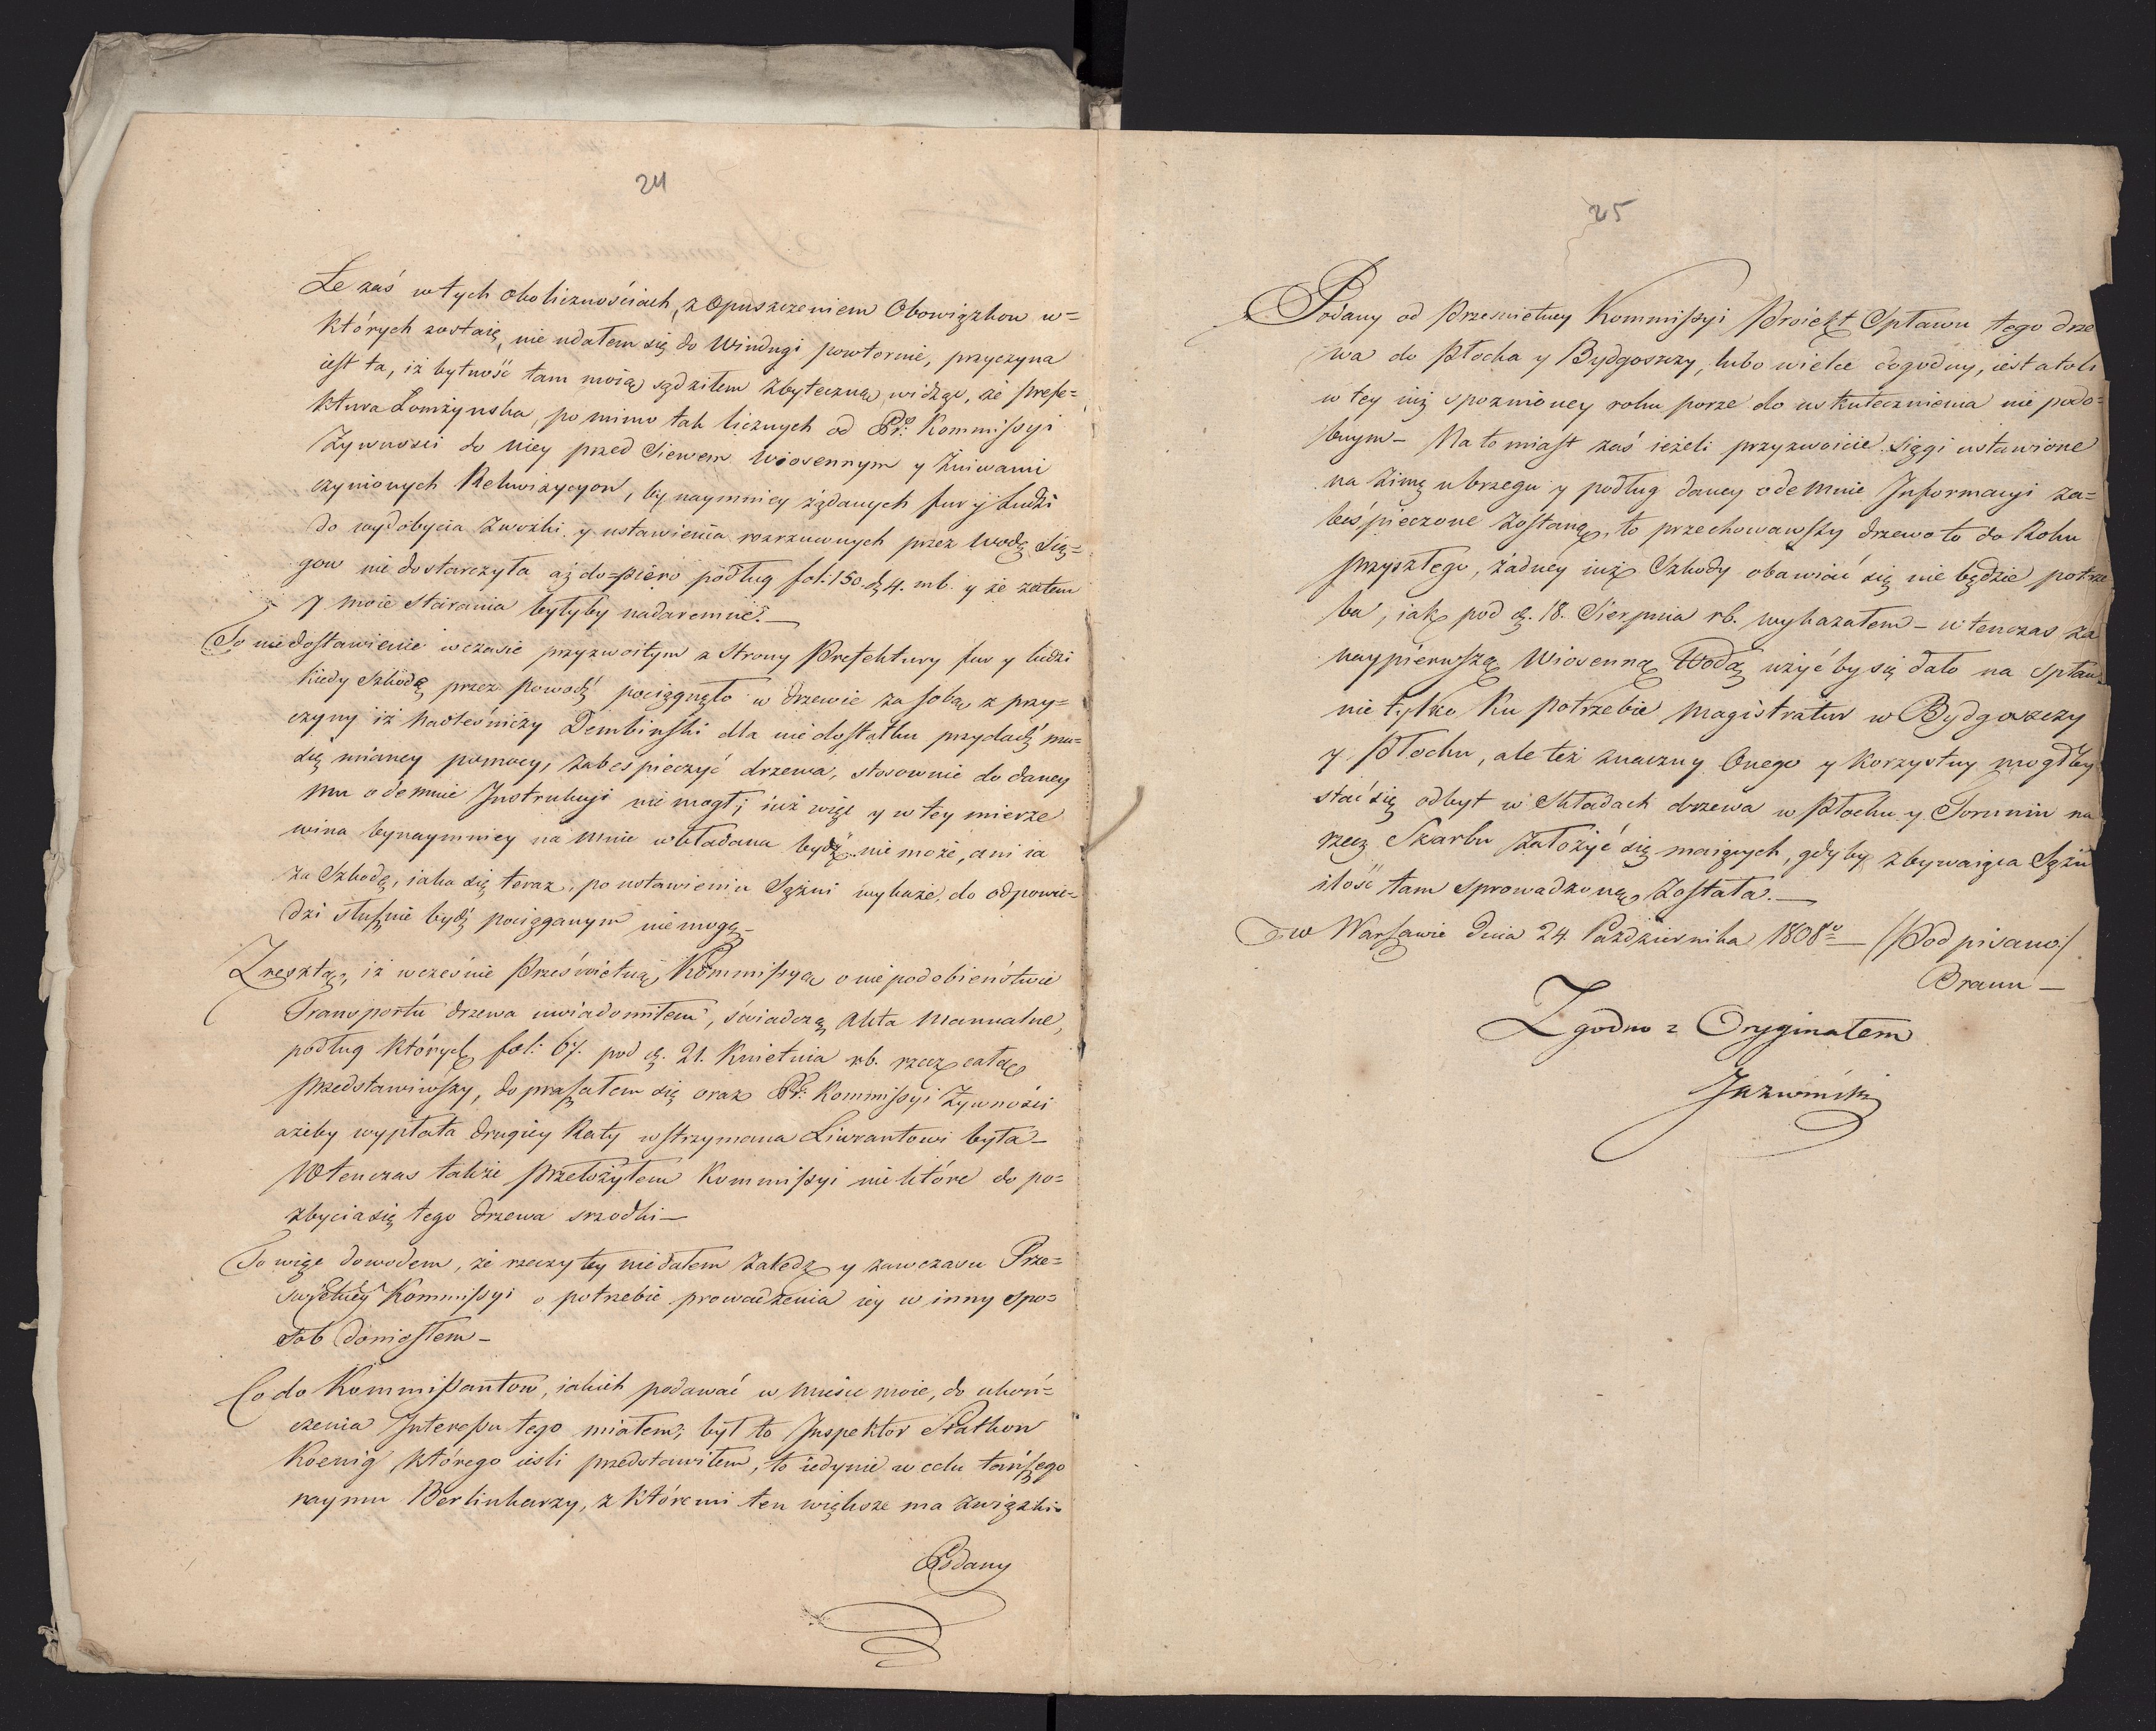 24
Że zaś w tych okolicznościach, z opuszczeniem Obowiązkow w=
których zostaię, nie udałem się do Windugi powtornie, przyczyna
iest ta, iż bytność tam moią sądziłem zbyteczną, widząc, że prefe=
ktura Łomżynska, po mimo tak licznych od Pr: Kommissyi
Żywnosci do niey przed Siewem Wiosennym y Żniwami
czynionych Rekwizycyow, by naymniey żądanych fur y Ludzi
do wydobycia zwózki y ustawienia rozrzuconych przez Wodę Sią=
gow nie dostarczyła aż do=piéro podług fol: 150. d. 4. mb. y że zatem
y moie starania byłyby nadaremne.—
To niedostawienie w czasie przyzwoitym z Strony Prefektury fur y ludzi
kiedy szkodę przez powódź pociągnęło w drzewie za sobą z przy=
czyny iż nadleśniczy Dembinski dla niedostatku przydadź mu=
się mianey pomocy, zabespieczyć drzewa, stosownie do daney
mu odemnie Instrukcyi nie mogł; iuż więc y w tey mierze
wina bynaymniey na mnie wkładana bydź nie może, ani ia
za Szkodę, iaka się teraz, po ustawieniu Sążni wykaże, do odpowie=
dzi słusznie bydź pociąganym nie mogę—
Zresztą, iż wcześnie Prześwietną Kommissyą o niepodobieństwie
Transportu drzewa uwiadomiłem, świadczą Akta Manualne,
podług których fol: 67. pod d. 21. Kwietnia rb. rzecz całą
przedstawiwszy, do praszałem się oraz Pr: Kommissyi Żywności
ażeby wypłata drugiey Raty wstrzymana Liwrantowi była—
Wtenczas także przełożyłem Kommissyi nie które do po=
zbycia się tego drzewa srzodki—
To więc dowodem, że rzeczy tey nie dałem zaledz y zawczasu Prze=
swietney Kommissyi o potrzebie prowadzenia iey w inny spo=
sob doniosłem—
Co do Kommissantow, iakich podawać w mieśce moie, do ukoń=
czenia Interessu tego miałem; był to Inspektor Stathon
Koenig, którego ieśli przedstawiłem, to iedynie w celu tańszego
naymu Berlinkarzy, z któremi ten większe ma związki—
Podany
25
Podany od Przeswietney Kommissyi Proiekt Spławu tego drze
wa do Płocka y Bydgoszczy, lubo wielce dogodny, iest atoli
w tey iuż spoznioney roku porze do uskutecznienia nie podo=
bnym— Natomiast zaś ieżeli przyzwoicie Siągi ustawione
na zimę u brzegu y podług daney odemnie Informacyi za=
bespieczone zostaną, to przechowawszy drzewo to do Roku
przyszłego, żadney iuż Szkody obawiać się nie będzie potrze
ba, iak pod d. 18. Sierpnia rb. wykazałem— w tenczas za
naypierwszą Wiosenną Wodą użyć by się dało na spław
nie tylko ku potrzebie Magistratur w Bydgoszczy
y Płocku, ale też znaczny Onego y korzystny mogłby
stać się odbyt w Składach drzewa w Płocku y Toruniu na
rzecz Skarbu założyć się maiących, gdyby zbywaiąca Sążni
ilość tam sprowadzoną została.—
w Warszawie dnia 24. Października 1808º— /Podpisano/
Braun—
Zgodno z Oryginałem
Jazwinski